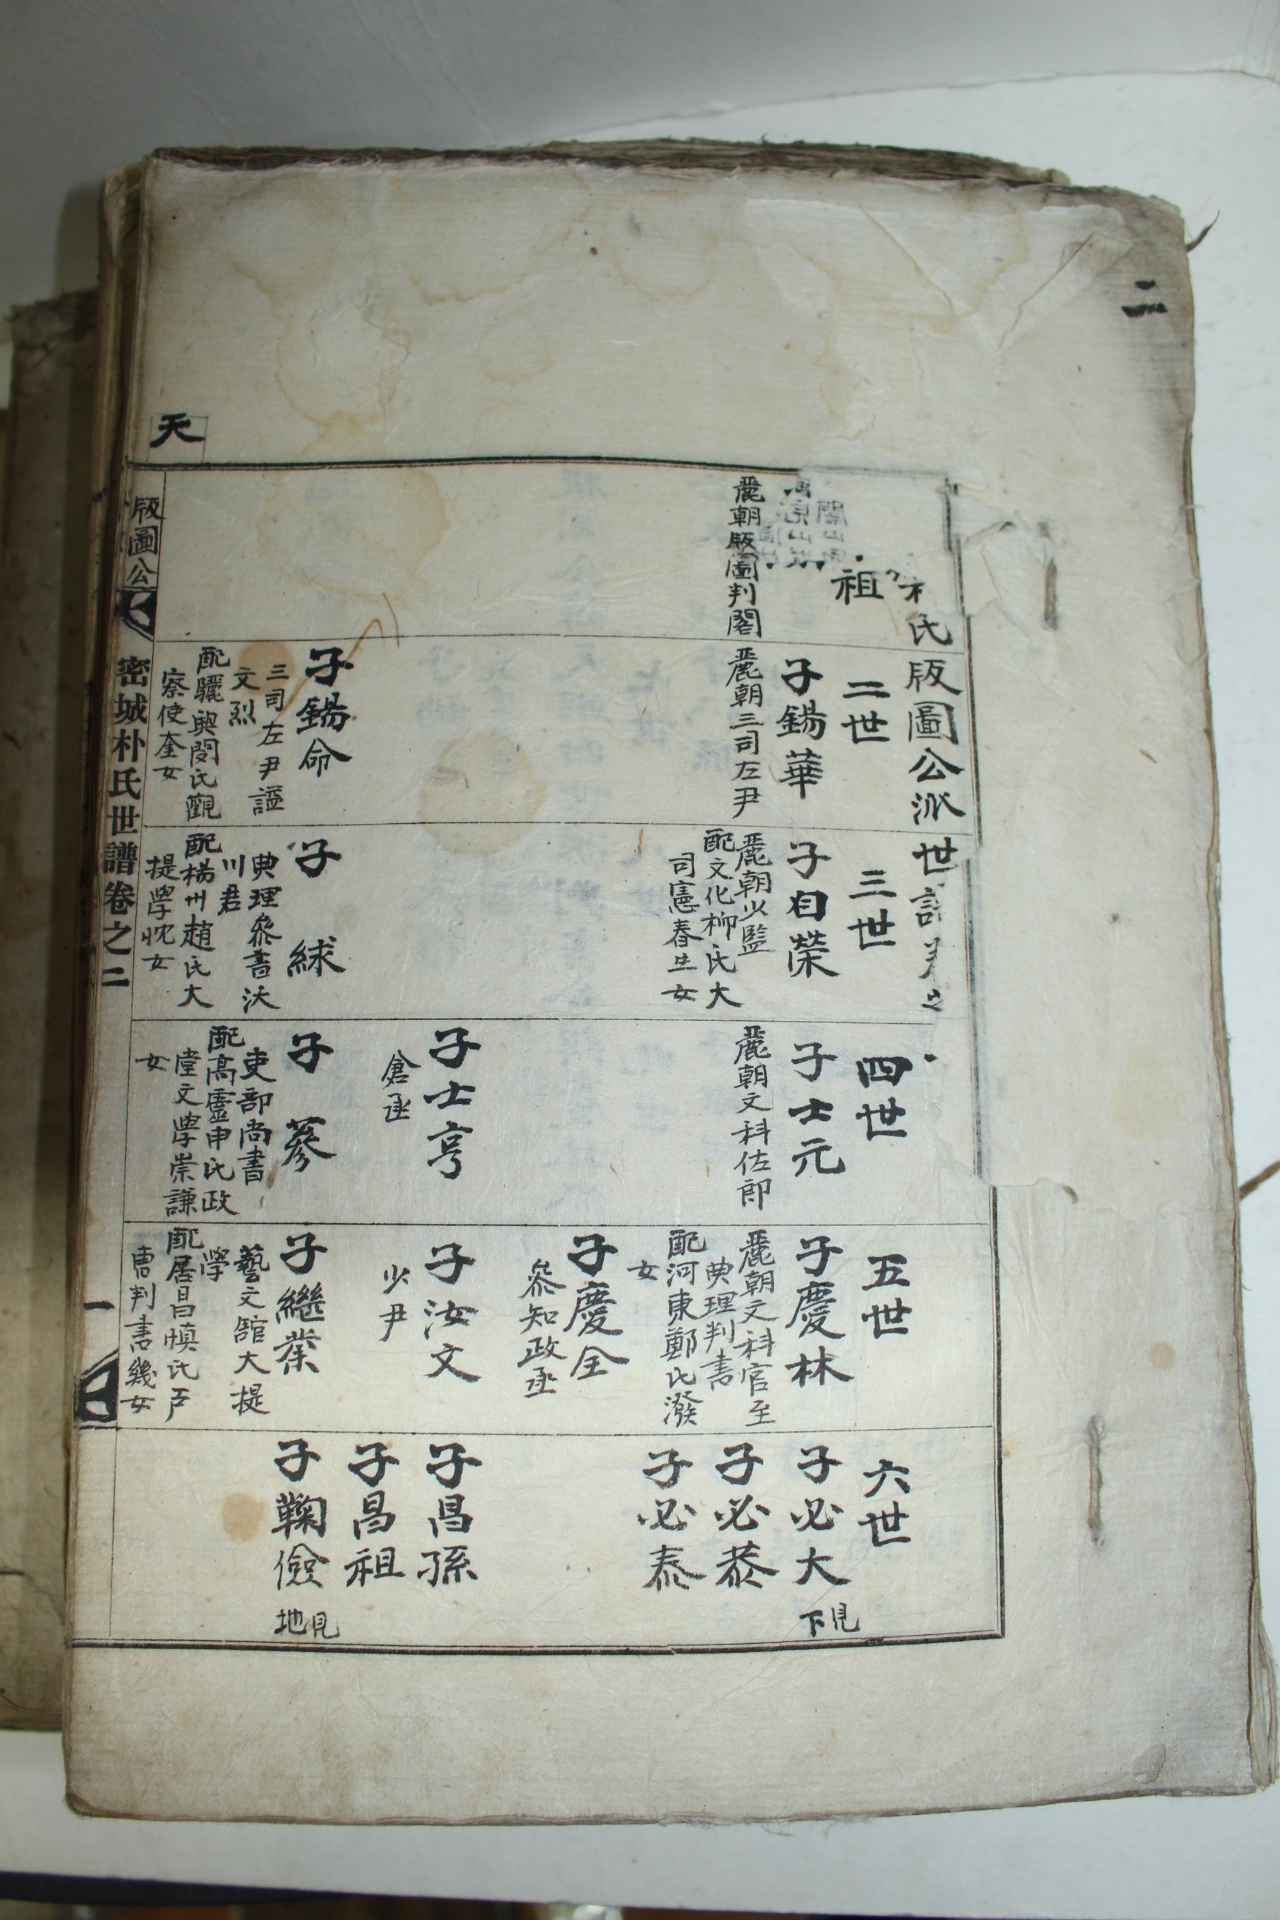 二
天
氏版圖公派世譜卷之
祖
麗朝版圖判閣
二世
子錫華
麗朝三司左尹
子錫命
三司左尹諡
文烈
配驪興閔氏觀
察使奎女
三世
子自榮
麗朝少監
配文化柳氏大
司憲春生女
子絿
典理參書沃
川君
配楊州趙氏大
提學忱女
四世
子士元
麗朝文科佐郎
子士亨
倉丞
子蔘
吏部尚書
配高靈申氏政
堂文學崇謙
女
五世
子慶林
麗朝文科官至
典理判書
配河東鄭氏潑
女
子慶全
參知政丞
子汝文
少尹
子繼業
藝文舘大提
學
配居昌愼氏戶
曺判書幾女
六世
子必大
見下
子必恭
子必泰
子昌孫
子昌祖
子鞠儉
見地
版圖公
密城朴氏世譜卷之二
一